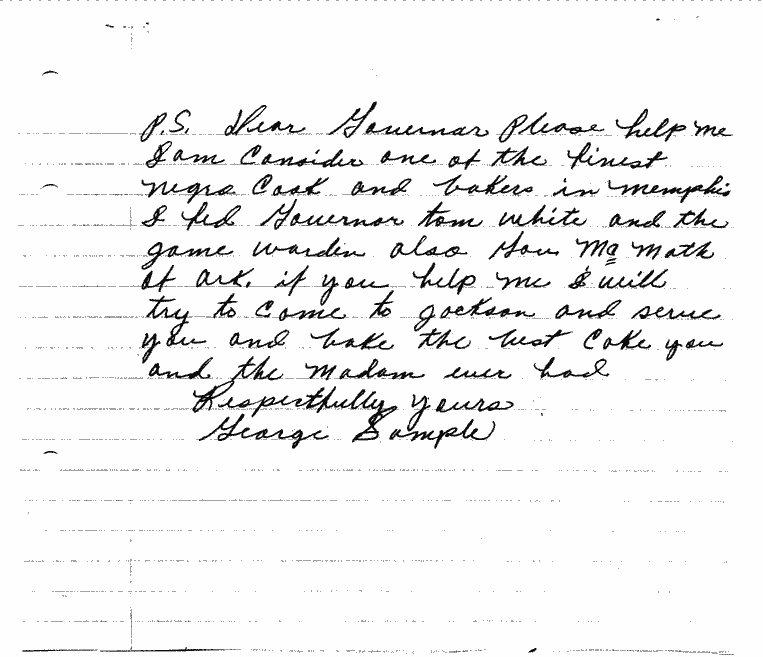 P.S. Dear Governor Please help me
I am Consider one of the finest
negro Cook and bakers in memphis
I fed Governor tom white and the
game warden also Gov. Mc Math
of Ark. if you help me I will
try to come to jackson and serve
you and bake the best Cake you
and the madam ever had
Respectfully yours
George Sample